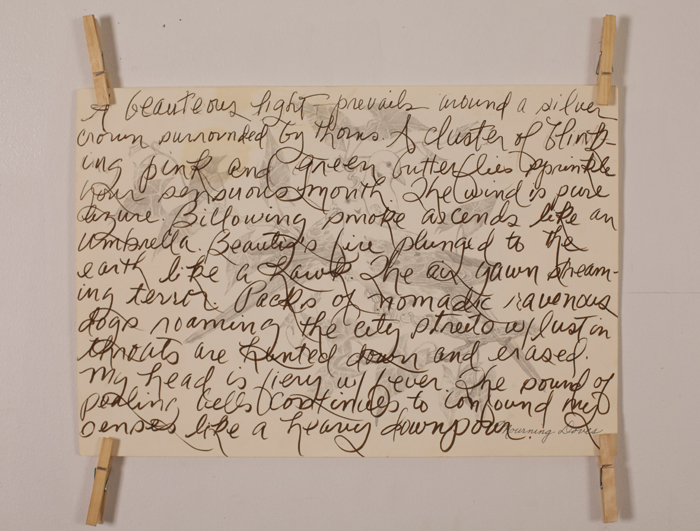 A beauteous light prevails around a silver
crown surrounded by thorns. A cluster of blink-
ing pink and green butterflies sprinkle
your sensuous mouth. The wind is pure
azure. Billowing smoke ascends like an
umbrella. Beauties fire plunged to the
earth like a hawk. The air yawn stream-
ing terror. Packs of nomadic ravenous
dogs roaming the city streets w/ lust in
throats are hunted down and erased.
My head is fiery w/ fever. The sound of
pealing bells continues to confound my
senses like a heavy downpour.
Mourning Doves